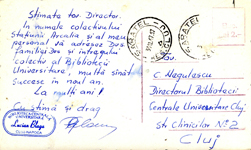 Stimate tov. Director.
In numele colectivului
Stațiunii Arcalia și al meu
personal vă adresez Dvs.
Familiei Dvs. și întregului
colectiv al Bibliotecii
Universitare, multă sănătate
Succese în noul an.
La mulți ani!
Cu stimă și drag
Lucian Blaga
CLUJ-NAPOCA
PARATEL-DOLJ
PARATEL
Tov.
C. Negulescu
Directorul Bibliotecii
Centrale Universitare Cluj
Str Clinicilor No. 2
Cluj